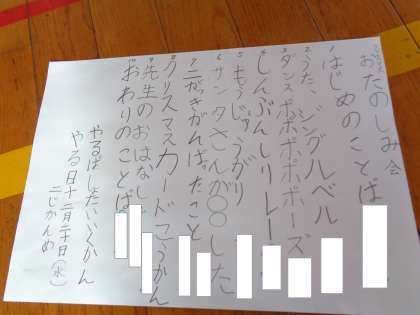 おたのしみ会
1 はじめのことば
2 うた、ジングルベル
3 ダンス ポポポポポーズ
4 しんぶんしリレー
5 もうじゅうがり
6 サンタさんが〇〇した
7 二がっきがんばったこと
8 クリスマスカードこうかん
9 先生のおはなし
おわりのことば
やるばしょたいいくかん
やる日十二月二十日(水)
二じかんめ